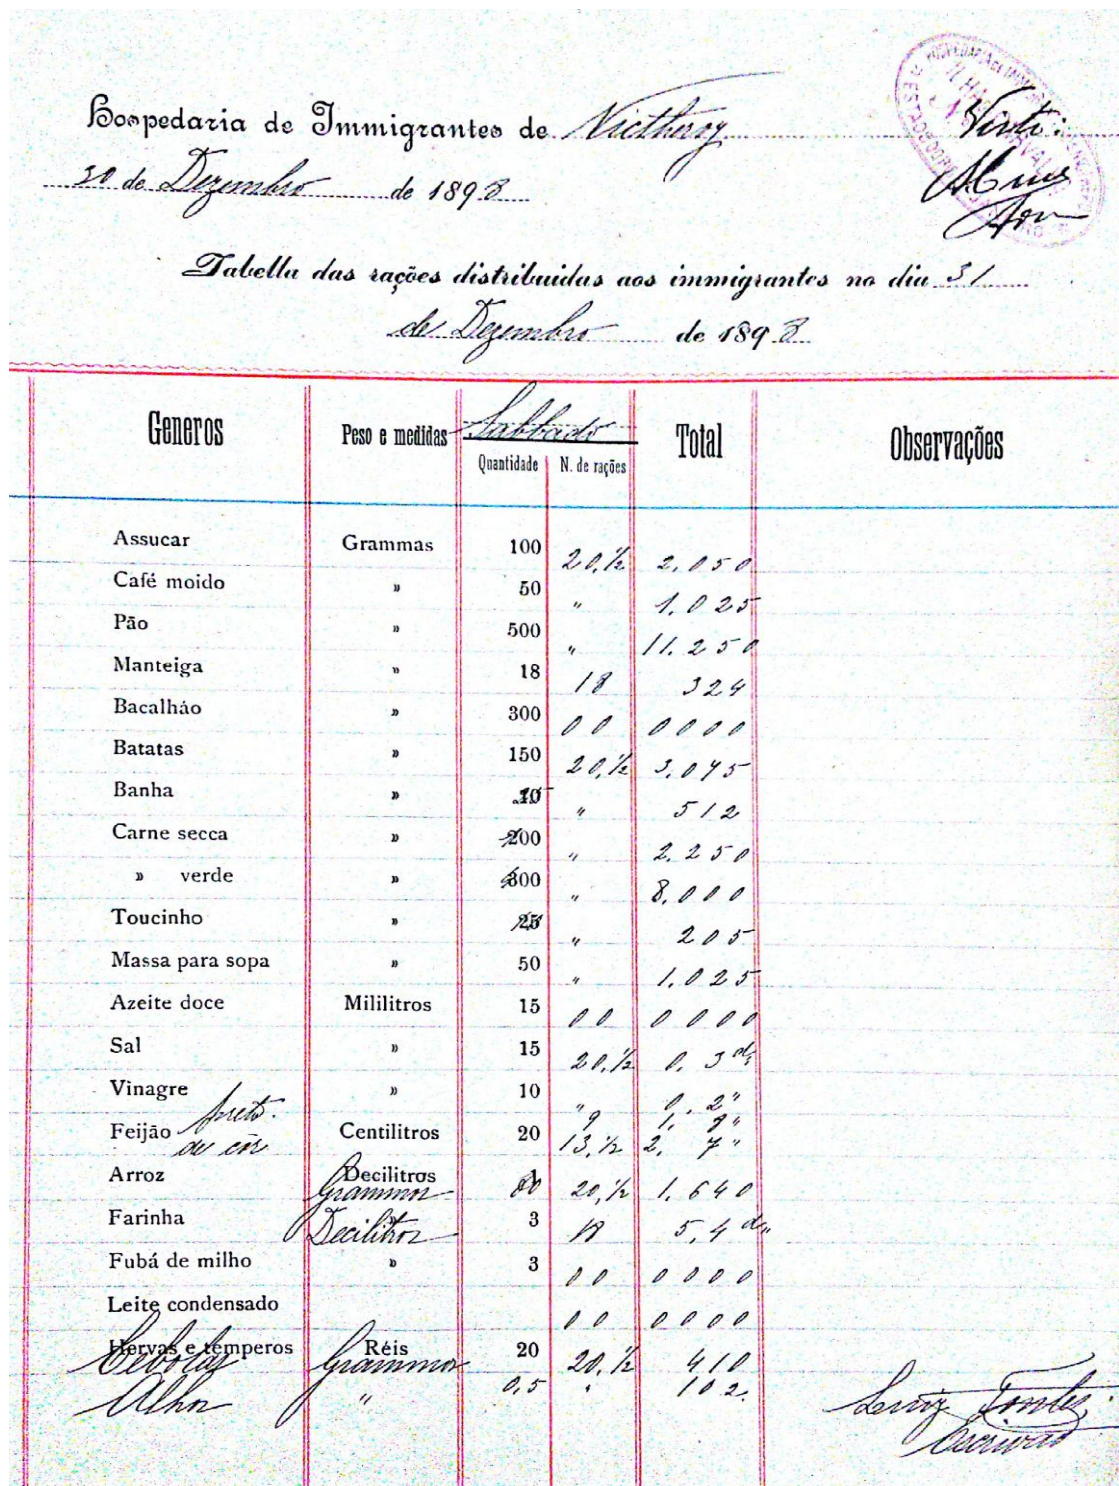 Hospedaria de Immigrantes de Nictheroy
Visto:
30 de Dezembro de 1898
Tabella das rações distribuidas aos immigrantes no dia 31
de Dezembro de 1898
Generos Peso e medidas Sabbado Total Observações
Quantidade N. de rações
Assucar Grammas 100 20,1/2 2.050
Café moido » 50 " 1.025
Pão » 500 " 11.250
Manteiga » 18 18 324
Bacalháo » 300 00 0000
Batatas » 150 20,1/2 3.075
Banha » " 512
Carne secca » 200 " 2.250
» verde » 300 " 8.000
Toucinho » 25 " 205
Massa para sopa » 50 " 1.025
Azeite doce Mililitros 15 00 0000
Sal » 15 20,1/2 0.3
Vinagre » 10 " 0.2"
preto. 9 1. 9"
Feijão Centilitros 20
de côr 13,1/2 2. 7"
Arroz Decilitros
Grammos 80 20,1/2 1.640
Farinha Decilitros 3 18 5,4
Fubá de milho » 3 00 0000
Leite condensado 00 0000
Hervas e temperos Réis 20
Cebolas Grammos 20,1/2 410
Alho " 0,5 " 102.
Luiz Fontes.
Escrivão